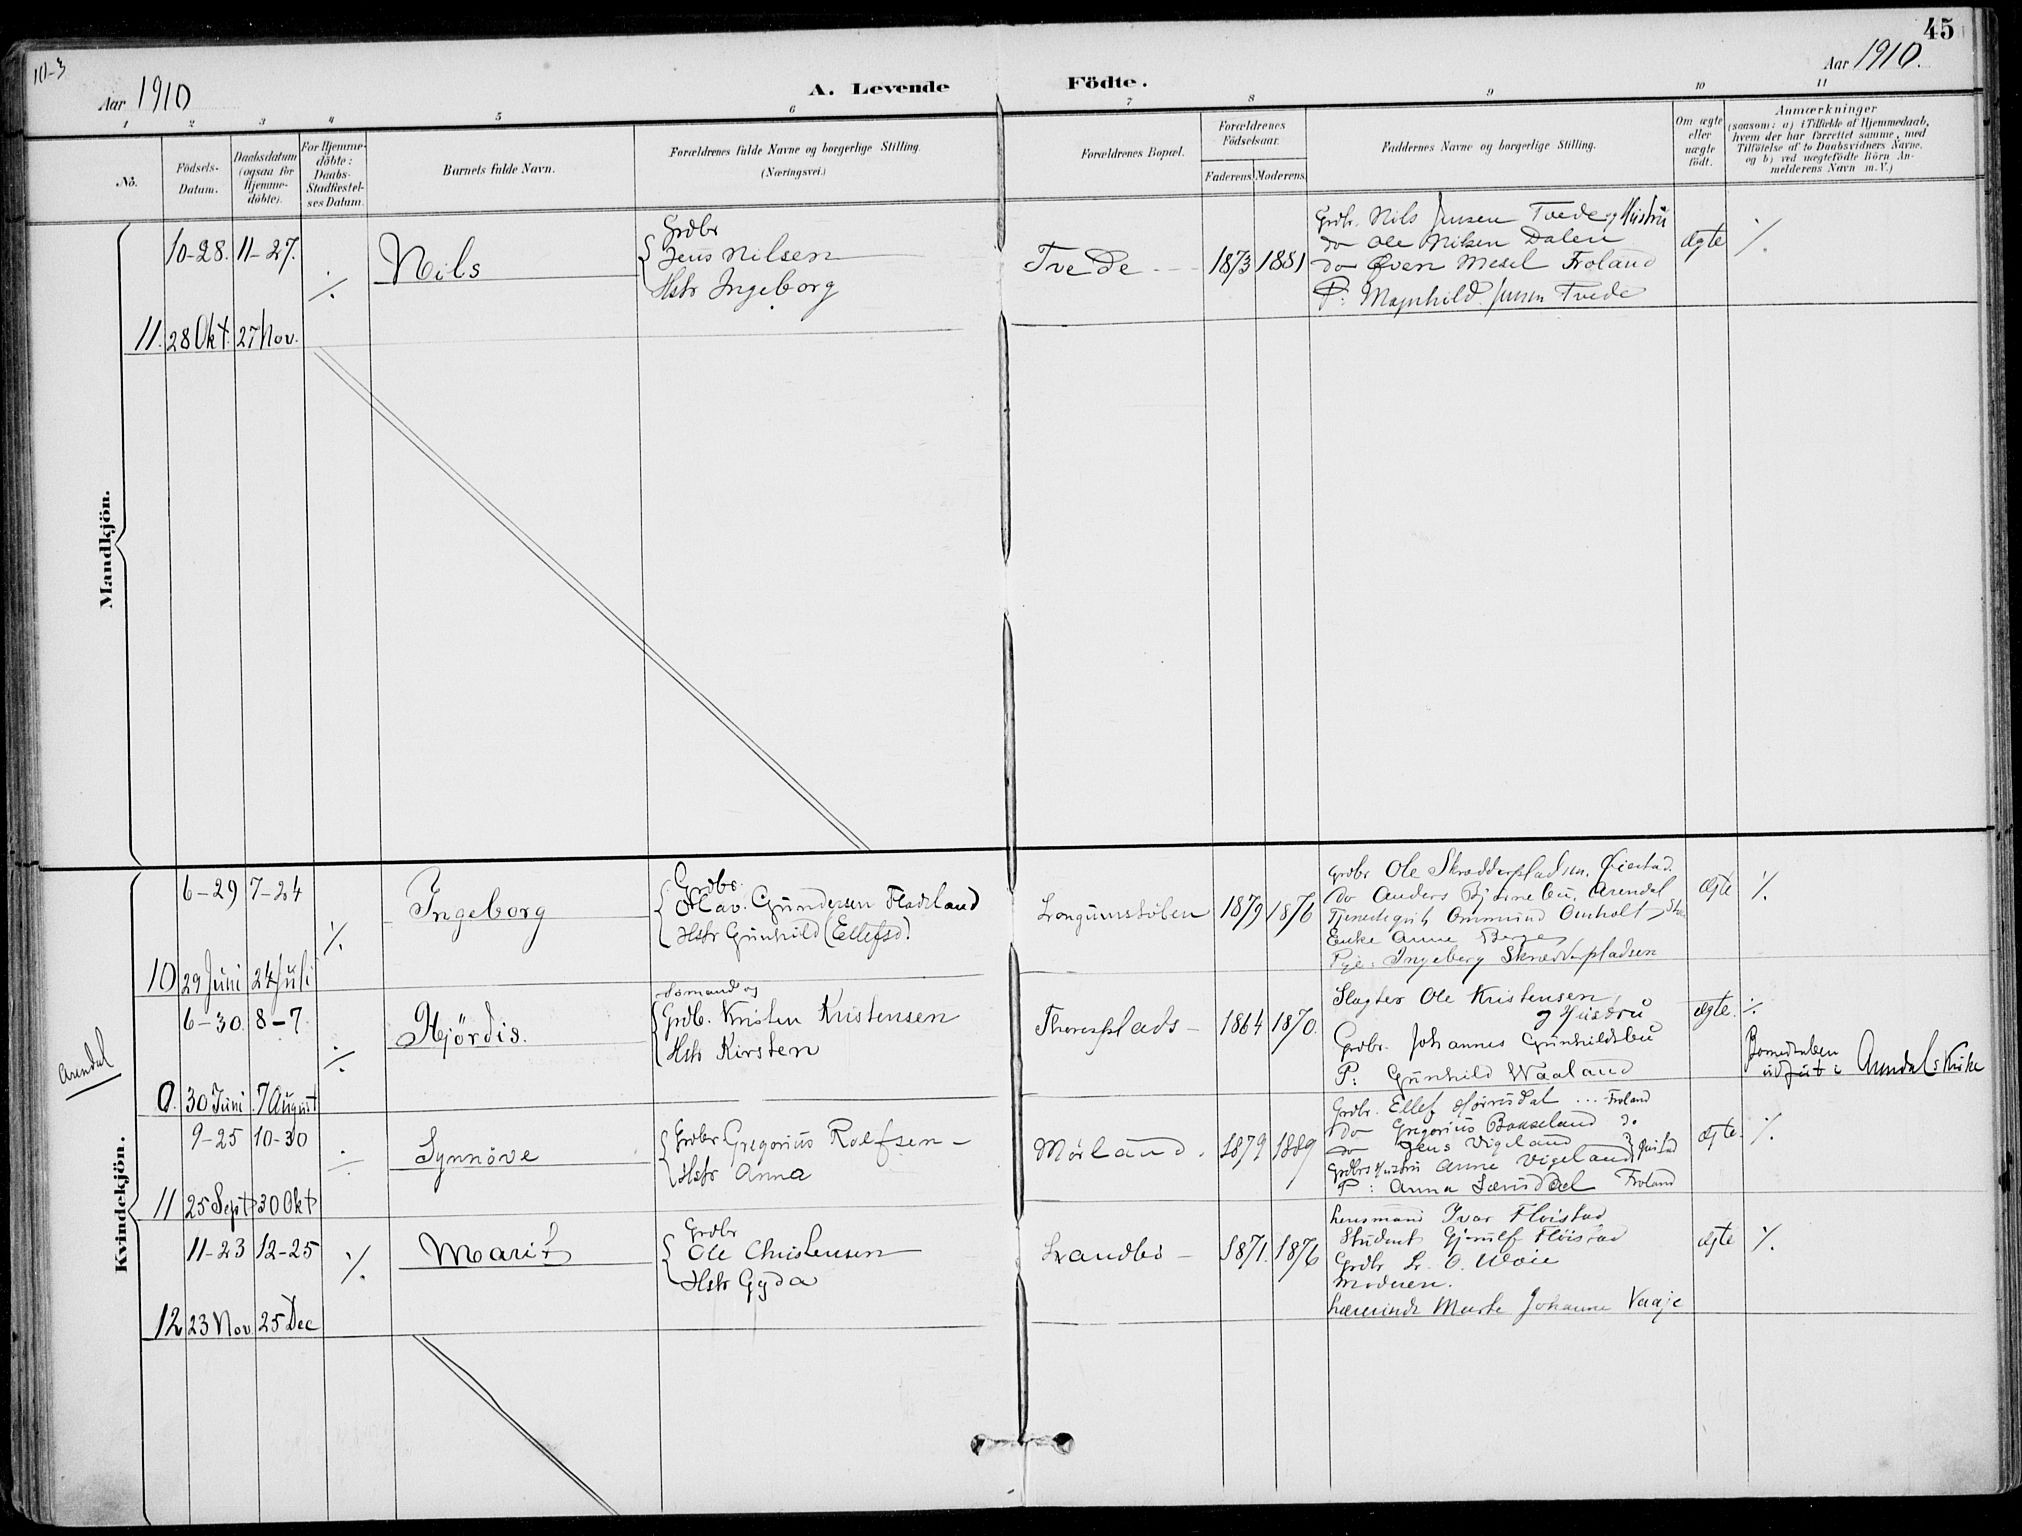 10-3
45
Aar 1910
A. Levende Födte.
Aar 1910.
1 2 3 4 5 6 7 8 9 10 11
No.
Födsels-Datum.
Daabsdatum (ogsaa for Hjemme-döbte).
For Hjemme-döbte: Daabs-Stadfæstel-ses Datum.
Barnets fulde Navn.
Forældrenes fulde Navne og borgerlige Stilling.
(Næringsvei.)
Forældrenes Bopæl.
Forældrenes Födselsaar.
Faderens. Moderens.
Faddernes Navne og borgerlige Stilling.
Om ægte eller uægte födt.
Anmærkninger
(saasom: a) i Tilfælde af Hjemmedaab,
hvem der har forrettet samme, med
Tilföielse af to Daabsvidners Navne,
og b) ved uægtefödte Börn An-
melderens Navn m.V.)
Mandkjön.
10-28. 11-27.
Nils
Grdbr
Jens Nilsen
Hstr Ingeborg
Tvede
1873 1881
Grdbr. Nils Jensen Tvede og Hustru
do Ole Nilsen Dalen
do Even Mesel Froland
P: Magnhild Jensen Tvede
ægte
11. 28 Okt. 27 Nov.
Kvindekjön.
6-29 7-24
Ingeborg
Grdbr.
Olav Gundersen Fladeland
Hstr Gunhild (Ellefsd.)
Longumstölen
1879 1876
Grdbr Ole Skrædderpladsen, Öiestad
do Anders Björnebu, Arendal
Ommund Omholt
Enke Anne Berge
Pige: Ingeborg Skrædderpladsen
ægte
10 29 Juni 24 Juli
6-30. 8-7.
Hjördis.
Sömand og
Grdb. Kristen Kristensen
Hstr Kirsten
Thoresplads
1864 1870.
Slagter Ole Kristensen
og Hustru
Grdbr. Johannes Gunhildsbu
P: Gunhild Waaland
ægte.
udført i Arendals Kirke
Arendal
0. 30 Juni 7 August
9-25 10-30
Synnöve
Grdbr Gregorius Rolfsen
Hstr Anna
Mörland.
1879 1889
Grdbr. Ellef ... Froland
do Gregorius Baaseland do
do Jens Vigeland
Grdbrs Hustru Anne Vigeland Öiestad
P: Anna Lærisdal Froland
ægte.
11 25 Sept 30 Okt
11-23 12-25
Marit
Grdbr
Ole Christensen
Hstr Gyda
Landbö
1871. 1876
Lensmand Ivar Flöistad
Student Gjerulf Flöistad
Grdbr
Moderen.
Lærerinde Marte Johanne Vaaje
ægte
12 23 Nov 25 Dec